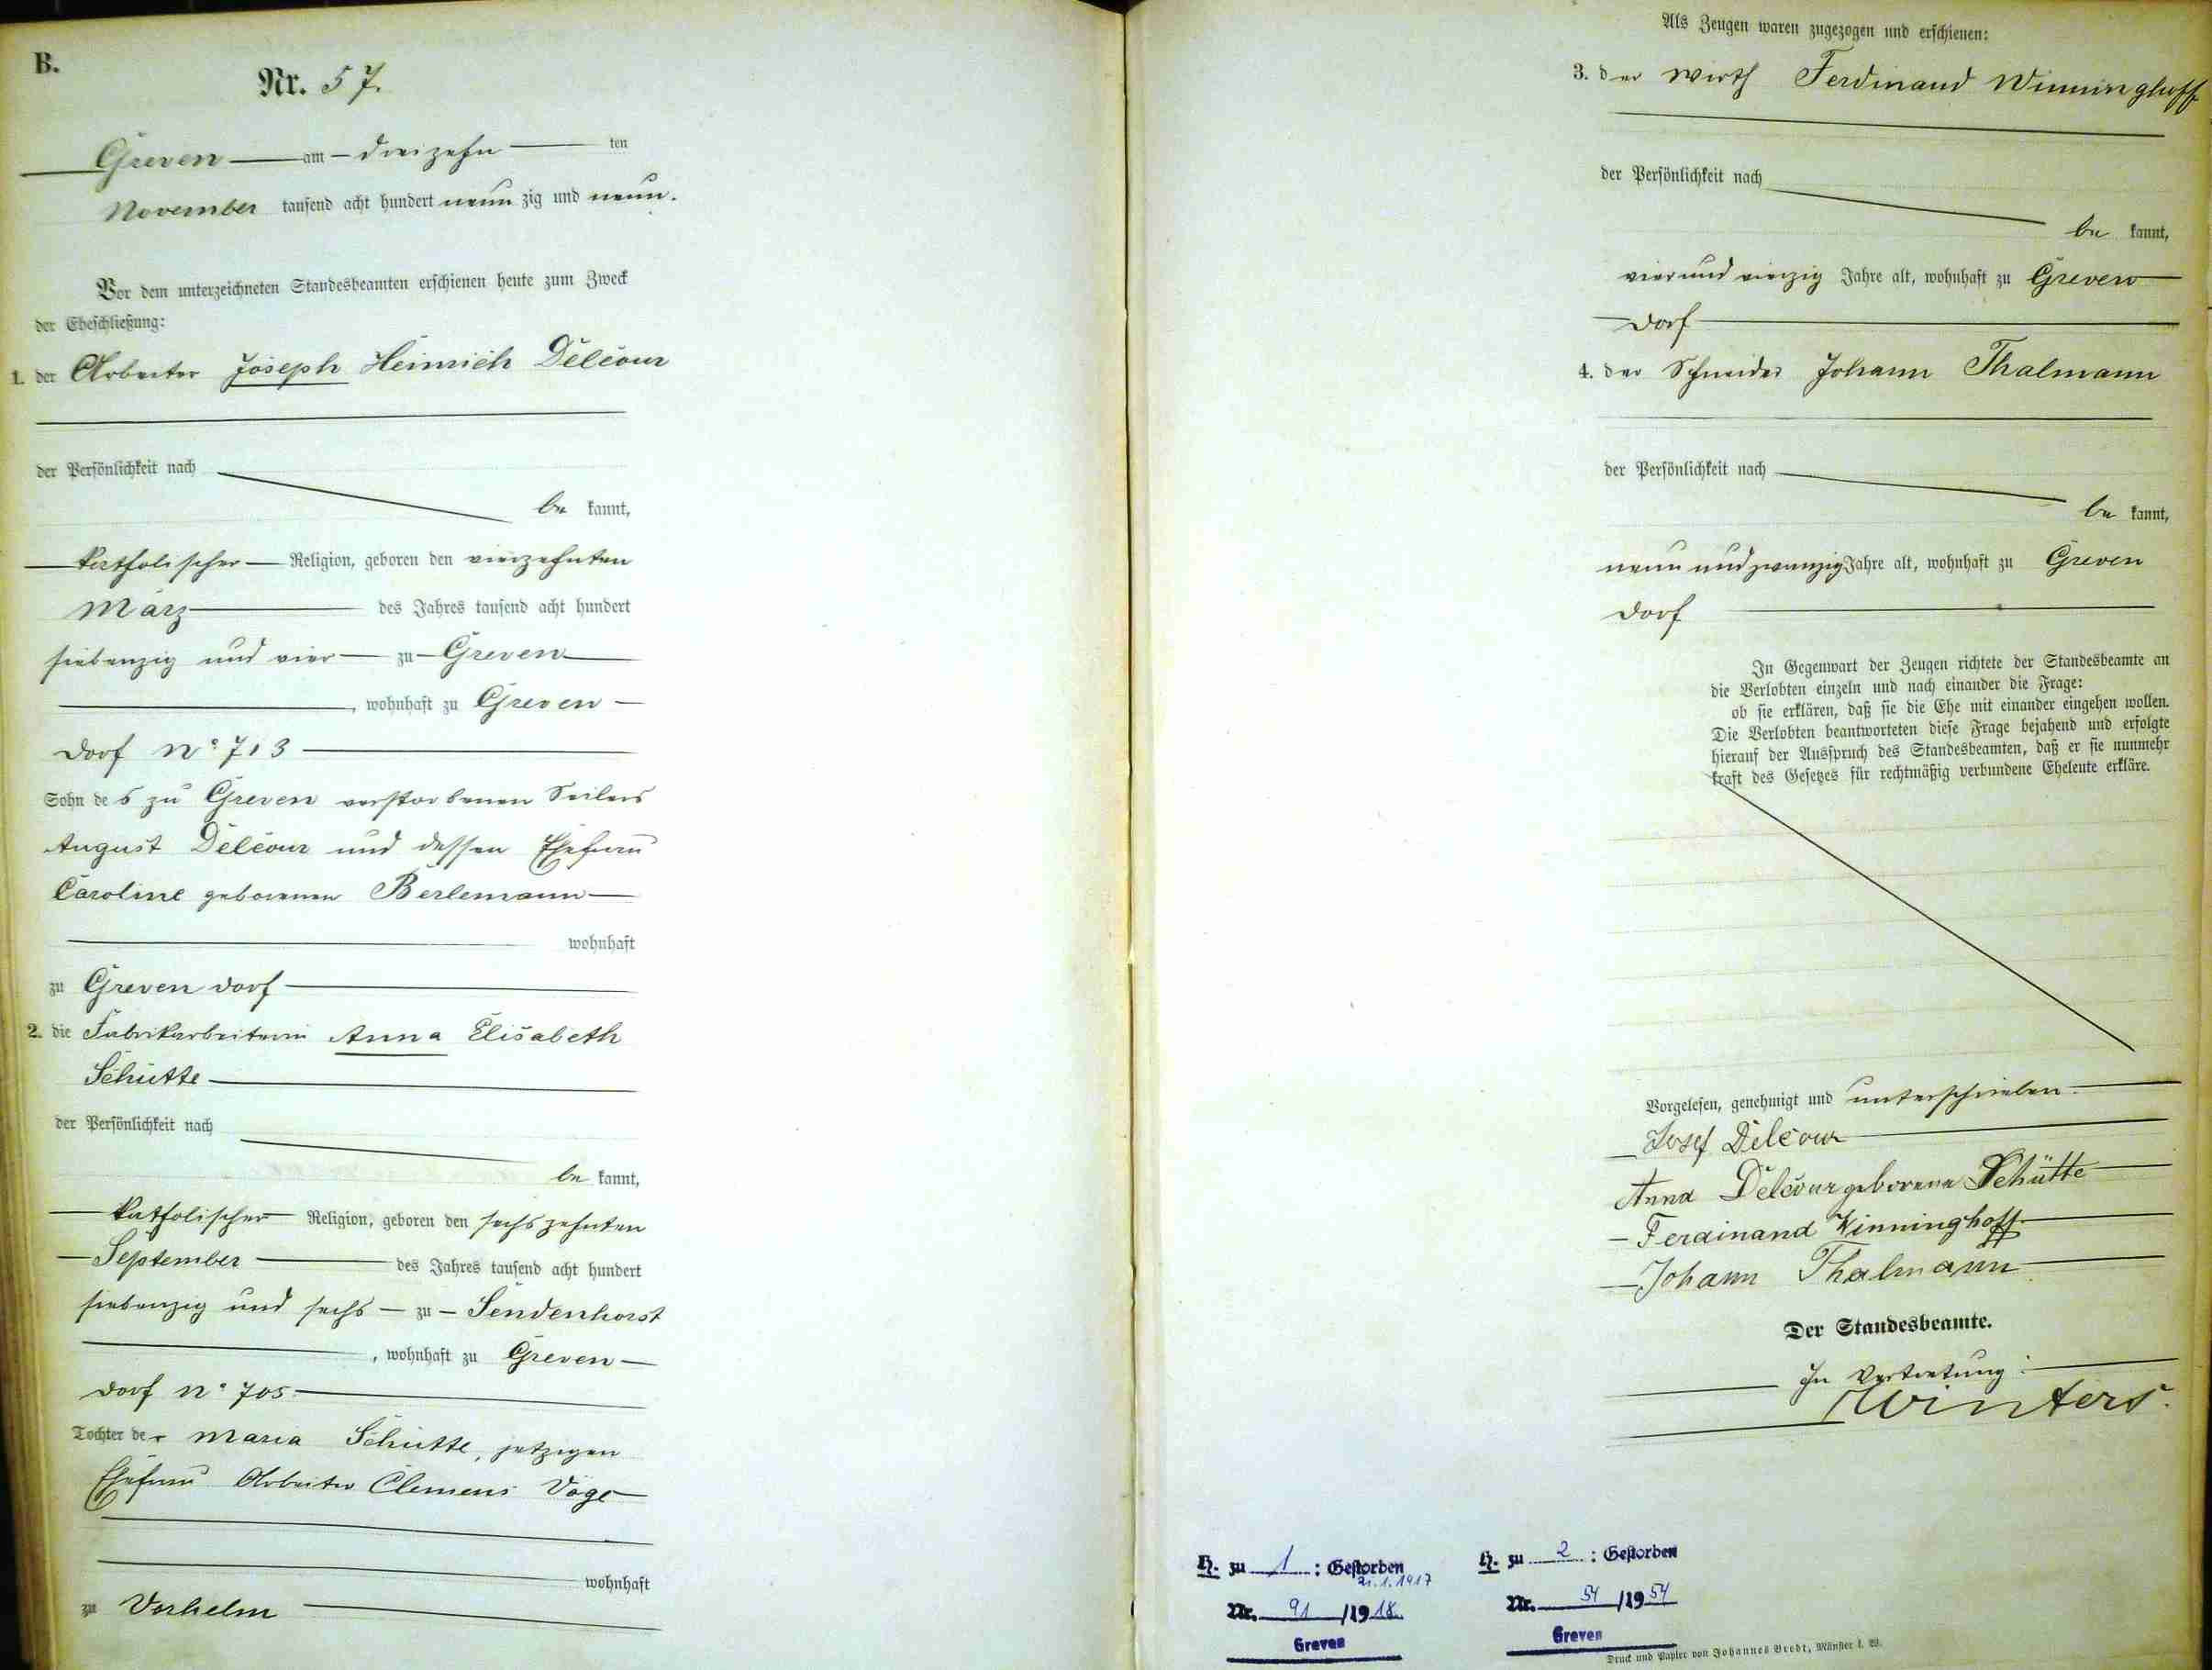 B.
Nr. 57.
Greven am dreizehn ten
November tausend acht hundert neun zig und neun.
Vor dem unterzeichneten Standesbeamten erschienen heute zum Zweck
der Eheschließung:
1. der Arbeiter Joseph Heinrich Delcour
der Persönlichkeit nach
be kannt,
katholischer Religion, geboren den vierzehnten
März des Jahres tausend acht hundert
siebenzig und vier zu Greven
, wohnhaft zu Greven
Dorf No 713
Sohn des zu Greven verstorbenen Seilers
August Delcour und dessen Ehefrau
Caroline geborenen Berlemann
wohnhaft
zu Greven Dorf
2. die Fabrikarbeiterin Anna Elisabeth
Schütte
der Persönlichkeit nach
be kannt,
katholischer Religion, geboren den sechszehnten
September des Jahres tausend acht hundert
siebenzig und sechs zu Sendenhorst
, wohnhaft zu Greven
Dorf No 705
Tochter der Maria Schütte, jetzigen
Ehefrau Arbeiter Clemens Voge
wohnhaft
zu Vorhelm
Als Zeugen waren zugezogen und erschienen:
3. der Wirth Ferdinand Winninghoff
der Persönlichkeit nach
be kannt,
vierundvierzig Jahre alt, wohnhaft zu Greven
Dorf
4. der Schneider Johann Thalmann
der Persönlichkeit nach
be kannt,
neunundzwanzig Jahre alt, wohnhaft zu Greven
Dorf
In Gegenwart der Zeugen richtete der Standesbeamte an
die Verlobten einzeln und nach einander die Frage:
ob sie erklären, daß sie die Ehe mit einander eingehen wollen.
Die Verlobten beantworteten diese Frage bejahend und erfolgte
hierauf der Ausspruch des Standesbeamten, daß er sie nunmehr
kraft des Gesetzes für rechtmäßig verbundene Eheleute erkläre.
Vorgelesen, genehmigt und unterschrieben.
Josef Delcour
Anna Delcour geborene Schütte
Ferdinand Winninghoff
Johann Thalmann
Der Standesbeamte.
In Vertretung:
Winters.
H. zu 1 : Gestorben
21.1.1917
Nr. 91 /1918
Greven
H. zu 2 : Gestorben
Nr. 54 /1954
Greven
Druck und Papier von Johannes Bredt, Münster i. W.